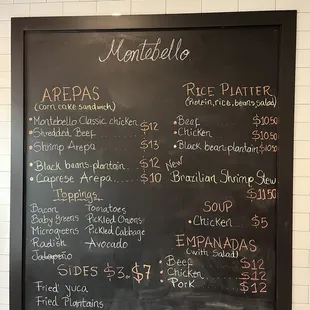 Montebello
AREPAS
(corn cake sandwich)
Montebello Classic chicken $12
Shredded Beef
Shrimp Arepa $13
Black beans, plantain $12
Caprese Arepa $10
Toppings
Bacon Tomatoes
Baby Greens Pickled Onions
Microgreens Pickled Cabbage
Radish Avocado
Jalapeño
SIDES $3 $7
Fried yuca
Fried Plantains
RICE PLATTER
(protein, rice, beans, salad)
Beef $10.50
Chicken $10.50
Black bean, plantain $10.50
New
Brazilian Shrimp Stew
$11.50
SOUP
Chicken $5
EMPANADAS
(with Salad)
Beef $12
Chicken $12
Pork $12